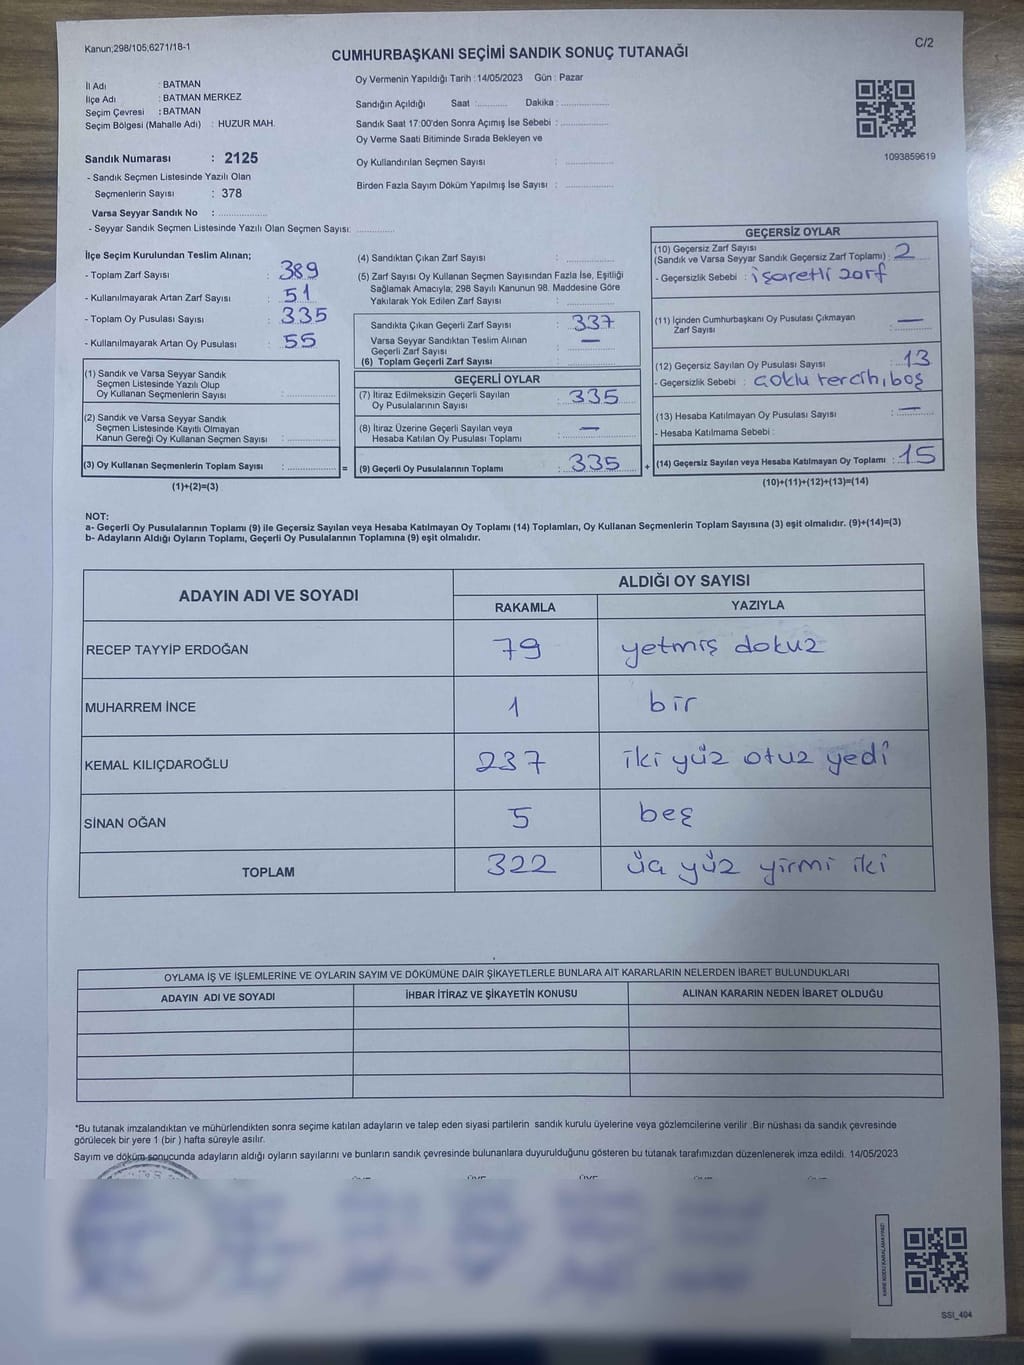 Kanun;298/105;6271/18-1
C/2
CUMHURBAŞKANI SEÇİMİ SANDIK SONUÇ TUTANAĞI
İl Adı : BATMAN
İlçe Adı : BATMAN MERKEZ
Seçim Çevresi : BATMAN
Seçim Bölgesi (Mahalle Adı) : HUZUR MAH.
Sandık Numarası : 2125
- Sandık Seçmen Listesinde Yazılı Olan
Seçmenlerin Sayısı : 378
Varsa Seyyar Sandık No : ..................
- Seyyar Sandık Seçmen Listesinde Yazılı Olan Seçmen Sayısı: ............
Oy Vermenin Yapıldığı Tarih : 14/05/2023 Gün : Pazar
Sandığın Açıldığı Saat :.......... Dakika : ................
Sandık Saat 17:00'den Sonra Açımış İse Sebebi : ................
Oy Verme Saati Bitiminde Sırada Bekleyen ve
Oy Kullandırılan Seçmen Sayısı : ................
Birden Fazla Sayım Döküm Yapılmış İse Sayısı : ................
1093859619
İlçe Seçim Kurulundan Teslim Alınan;
- Toplam Zarf Sayısı : 389
- Kullanılmayarak Artan Zarf Sayısı : 51
- Toplam Oy Pusulası Sayısı : 335
- Kullanılmayarak Artan Oy Pusulası : 55
(1) Sandık ve Varsa Seyyar Sandık
Seçmen Listesinde Yazılı Olup
Oy Kullanan Seçmenlerin Sayısı : ................
(2) Sandık ve Varsa Seyyar Sandık
Seçmen Listesinde Kayıtlı Olmayan
Kanun Gereği Oy Kullanan Seçmen Sayısı : ................
(3) Oy Kullanan Seçmenlerin Toplam Sayısı : ................ =
(1)+(2)=(3)
(4) Sandıktan Çıkan Zarf Sayısı : ................
(5) Zarf Sayısı Oy Kullanan Seçmen Sayısından Fazla İse, Eşitliği
Sağlamak Amacıyla; 298 Sayılı Kanunun 98. Maddesine Göre
Yakılarak Yok Edilen Zarf Sayısı : ................
Sandıkta Çıkan Geçerli Zarf Sayısı : 337
Varsa Seyyar Sandıktan Teslim Alınan
Geçerli Zarf Sayısı : —
(6) Toplam Geçerli Zarf Sayısı : ................
GEÇERLİ OYLAR
(7) İtiraz Edilmeksizin Geçerli Sayılan
Oy Pusulalarının Sayısı : 335
(8) İtiraz Üzerine Geçerli Sayılan veya
Hesaba Katılan Oy Pusulası Toplamı : —
(9) Geçerli Oy Pusulalarının Toplamı : 335 +
GEÇERSİZ OYLAR
(10) Geçersiz Zarf Sayısı
(Sandık ve Varsa Seyyar Sandık Geçersiz Zarf Toplamı) : 2
- Geçersizlik Sebebi : işaretli zarf
(11) İçinden Cumhurbaşkanı Oy Pusulası Çıkmayan
Zarf Sayısı : —
(12) Geçersiz Sayılan Oy Pusulası Sayısı : 13
- Geçersizlik Sebebi : çoklu tercih, boş
(13) Hesaba Katılmayan Oy Pusulası Sayısı : —
- Hesaba Katılmama Sebebi :
(14) Geçersiz Sayılan veya Hesaba Katılmayan Oy Toplamı : 15
(10)+(11)+(12)+(13)=(14)
NOT:
a- Geçerli Oy Pusulalarının Toplamı (9) ile Geçersiz Sayılan veya Hesaba Katılmayan Oy Toplamı (14) Toplamları, Oy Kullanan Seçmenlerin Toplam Sayısına (3) eşit olmalıdır. (9)+(14)=(3)
b- Adayların Aldığı Oyların Toplamı, Geçerli Oy Pusulalarının Toplamına (9) eşit olmalıdır.
ADAYIN ADI VE SOYADI
ALDIĞI OY SAYISI
RAKAMLA YAZIYLA
RECEP TAYYİP ERDOĞAN 79 yetmiş dokuz
MUHARREM İNCE 1 bir
KEMAL KILIÇDAROĞLU 237 iki yüz otuz yedi
SİNAN OĞAN 5 beş
TOPLAM 322 üç yüz yirmi iki
OYLAMA İŞ VE İŞLEMLERİNE VE OYLARIN SAYIM VE DÖKÜMÜNE DAİR ŞİKAYETLERLE BUNLARA AİT KARARLARIN NELERDEN İBARET BULUNDUKLARI
ADAYIN ADI VE SOYADI İHBAR İTİRAZ VE ŞİKAYETİN KONUSU ALINAN KARARIN NEDEN İBARET OLDUĞU
*Bu tutanak imzalandıktan ve mühürlendikten sonra seçime katılan adayların ve talep eden siyasi partilerin sandık kurulu üyelerine veya gözlemcilerine verilir .Bir nüshası da sandık çevresinde
görülecek bir yere 1 (bir ) hafta süreyle asılır.
Sayım ve döküm sonucunda adayların aldığı oyların sayılarını ve bunların sandık çevresinde bulunanlara duyurulduğunu gösteren bu tutanak tarafımızdan düzenlenerek imza edildi. 14/05/2023
KARE KODU KARALAMAYINIZ!
SSI_404